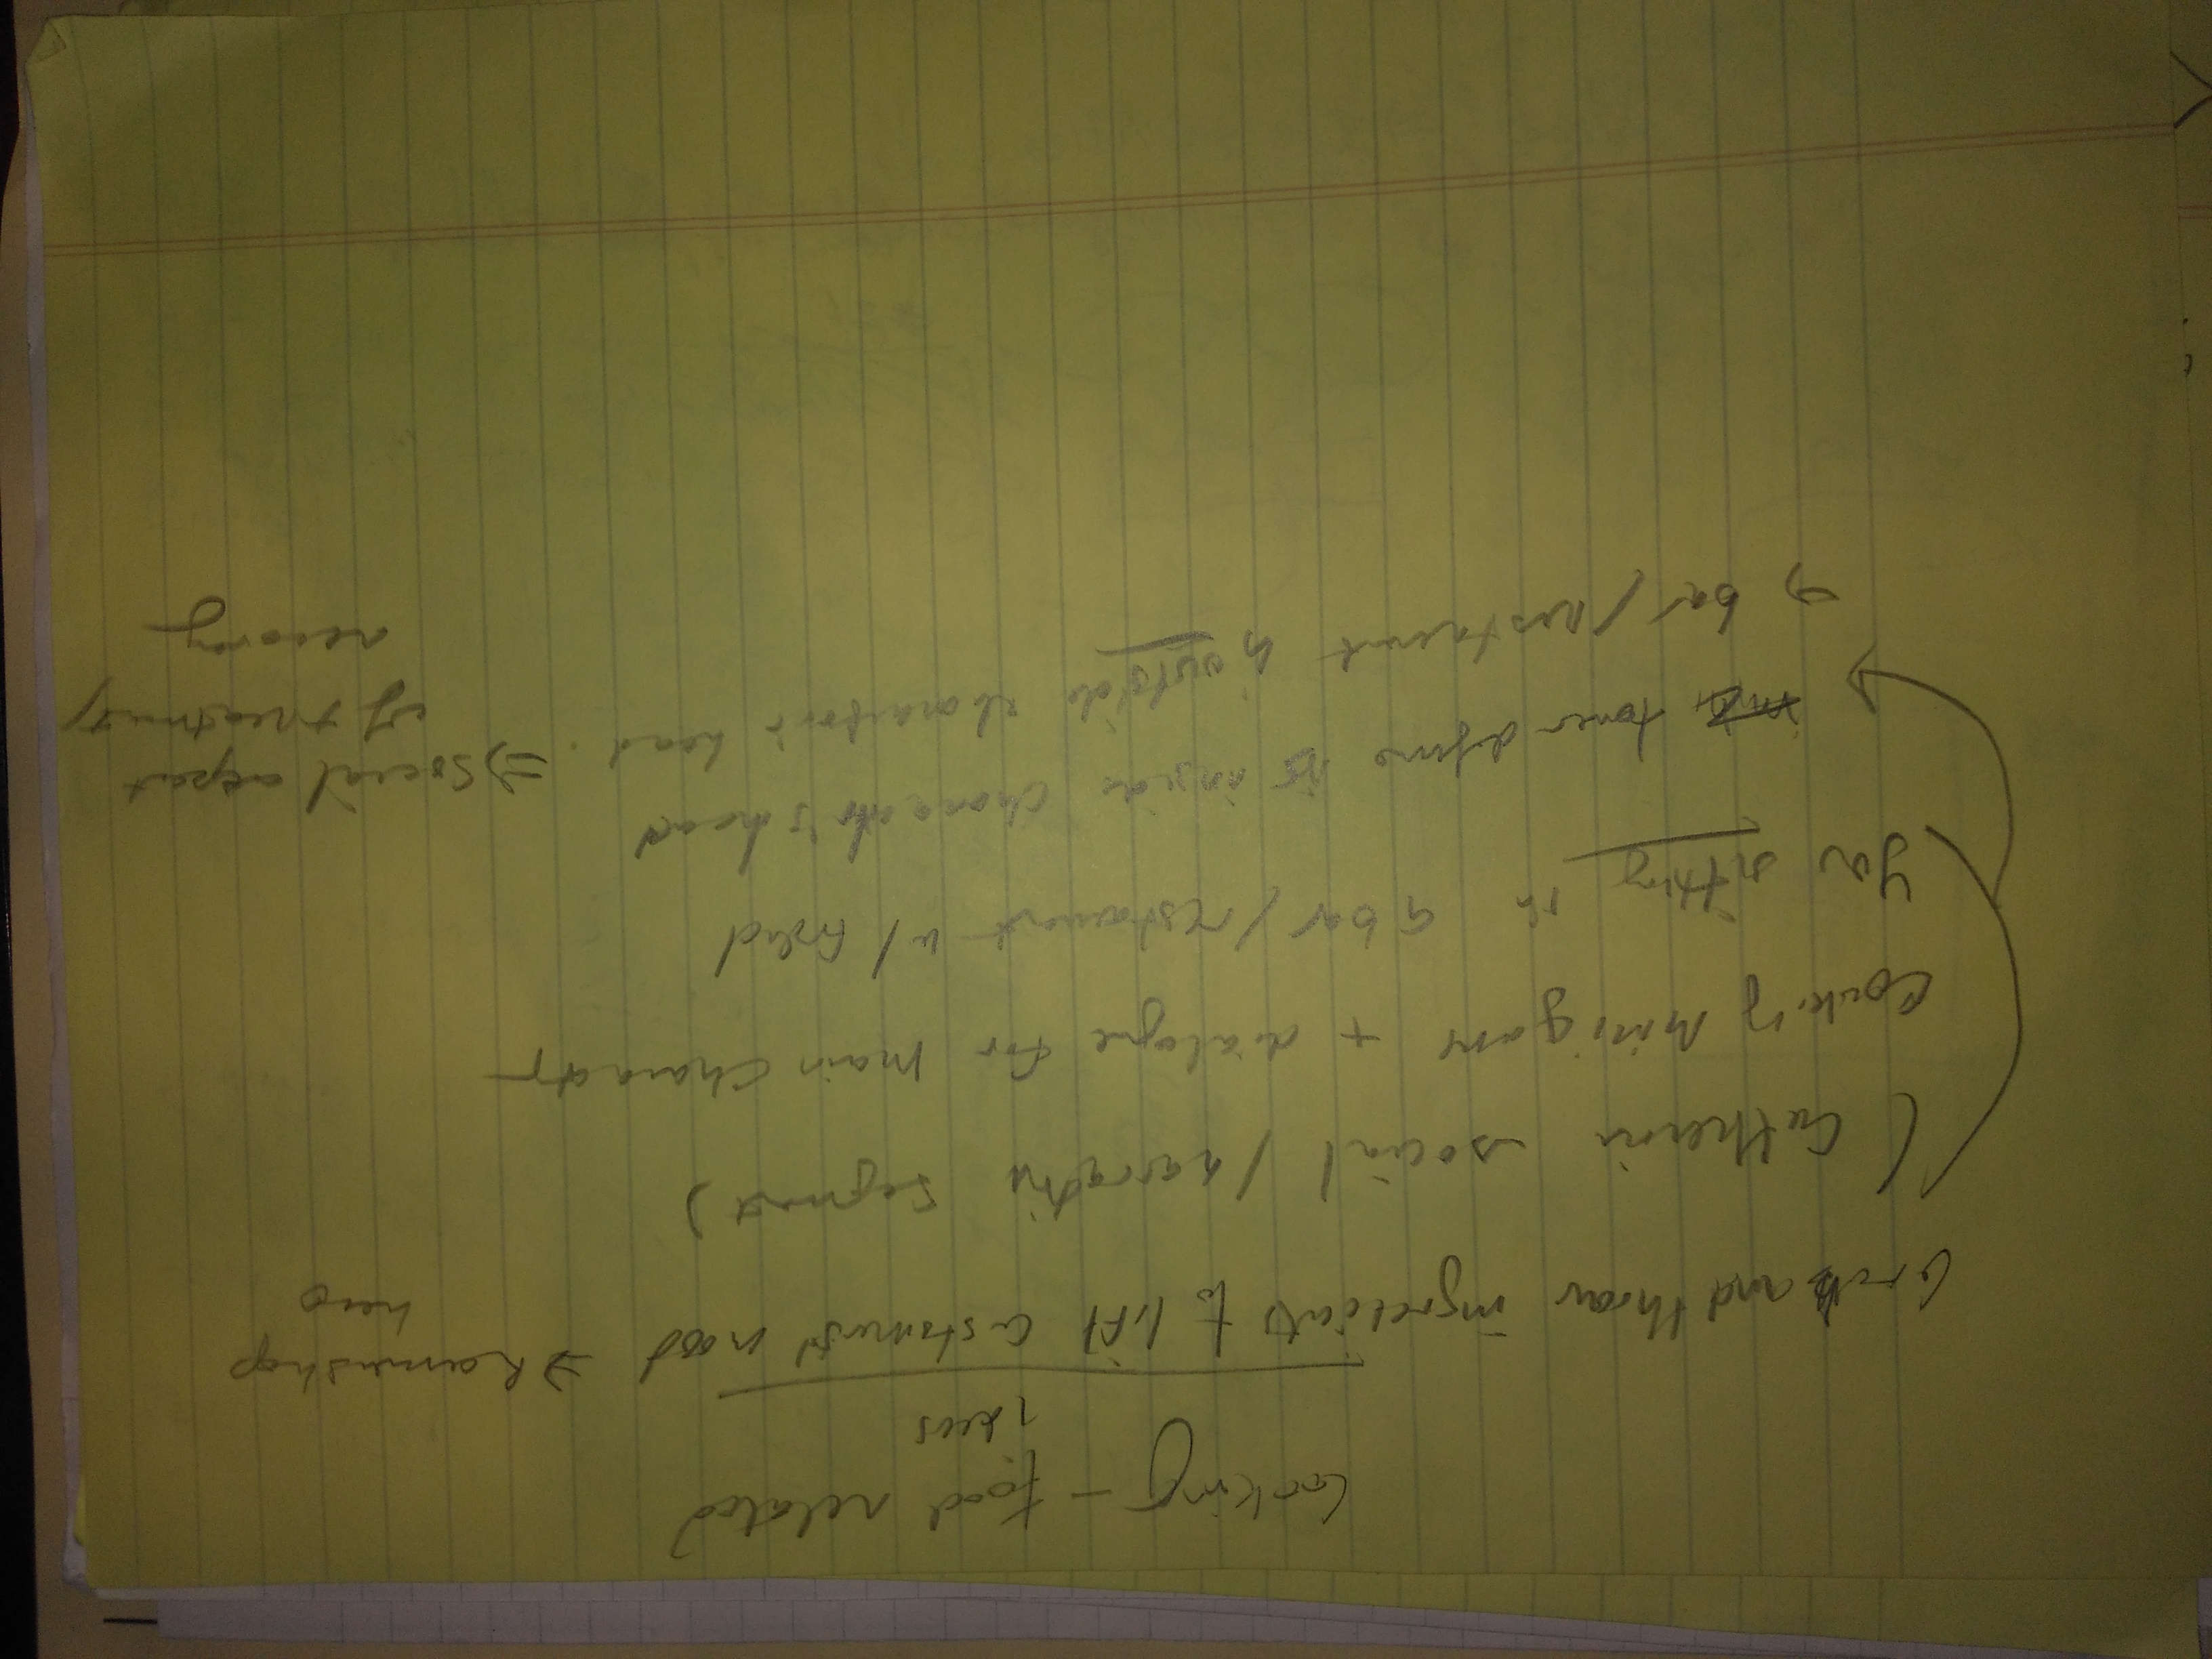 Cooking - food related
ideas
Grab and throw ingredients to lift customers' mood => Ramenshop
hero
(Catherine social / narrative segment)
Cooking minigame + dialogue for main character
You sitting in a bar / restaurant w/ friend
tower defense is inside character's head
-> bar / restaurant is outside character's head. => Social aspect
of treatment/
recovery